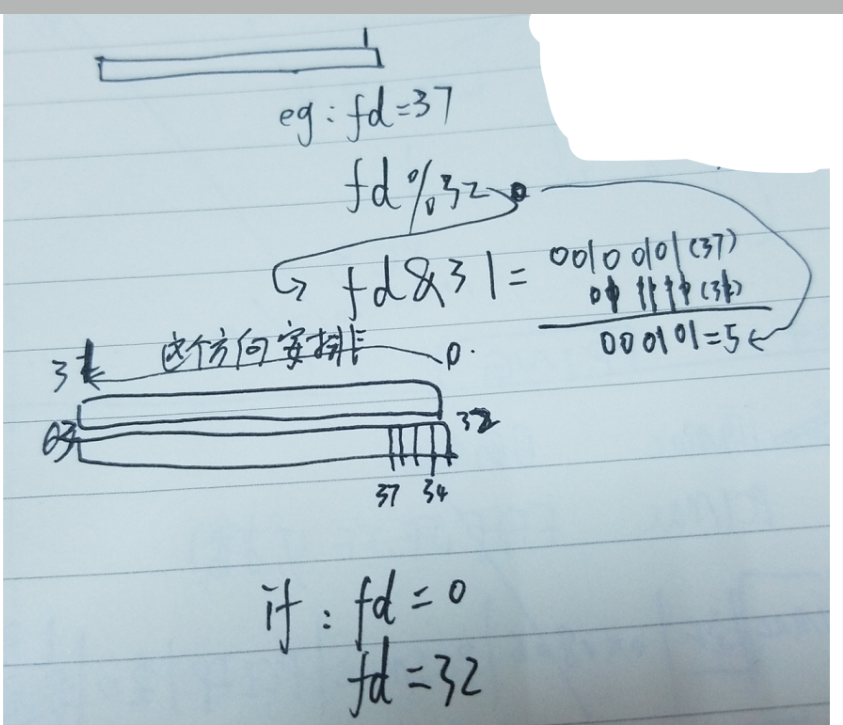 eg: fd=37
fd%32
fd&31=
0010 0101(37)
01 1111(31)
000101=5
31 这个方向安排 0.
32
63
37 34
if: fd=0
fd=32